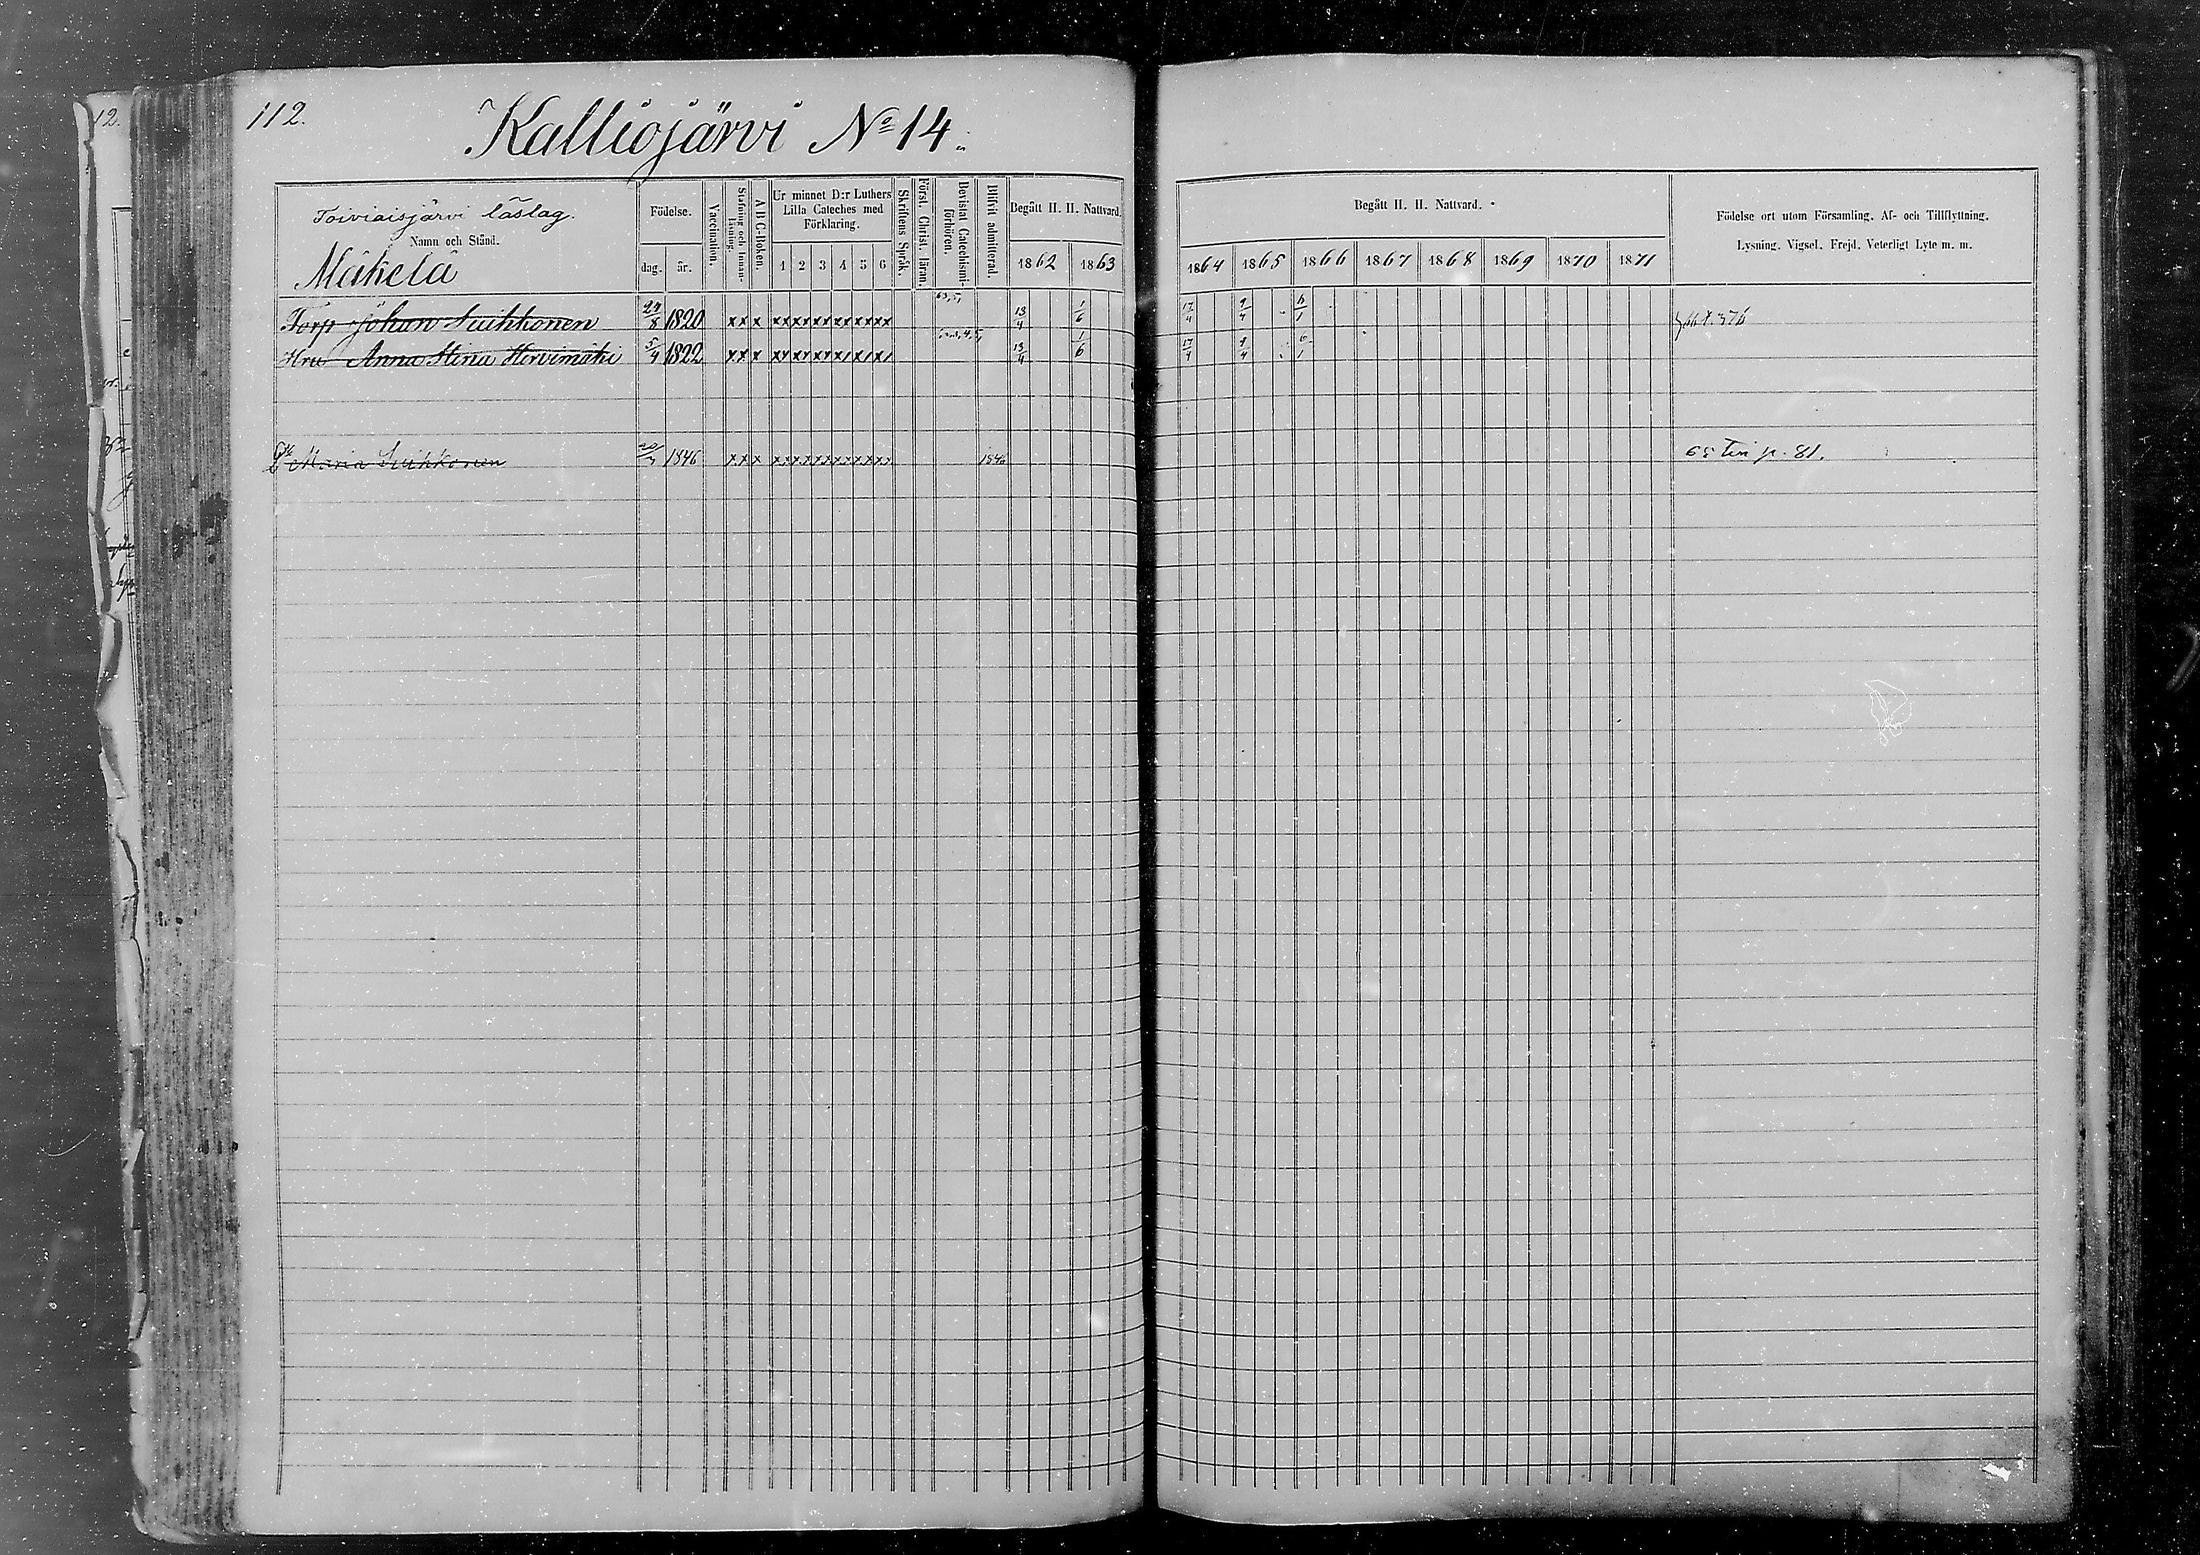 112.
Kalliojärvi No 14.
Toiviaisjärvi läslag.
Namn och Stånd.
Mäkelä
Födelse.
dag. år.
Vaccination.
Stafning och Innanläsning.
A B C-Boken.
Ur minnet D:r Luthers
Lilla Cateches med
Förklaring.
1 2 3 4 5 6
Skriftens Språk.
Först. Christ. läran.
Bevistat Catechismiförhören.
Blifvit admitterad.
Begått H. H. Nattvard.
1862 1863
Begått H. H. Nattvard.
1864 1865 1866 1867 1868 1869 1870 1871
Födelse ort utom Församling. Af- och Tillflyttning.
Lysning. Vigsel. Frejd. Veterligt Lyte m. m.
Torp Johan Suihkonen 24/8 1820 xxx xxxxxxxxxxxx 13/4 1/6 17/4 9/4 6/1 66 p. 376
Hru Anna Stina Hirvimäki 5/4 1822 xxx xxxxxxxxxxxx 13/4 1/6 17/4 9/4 6/1
Maria Suihkonen 1846 xxx xxxxxxxxxxxx 65 p. 81.